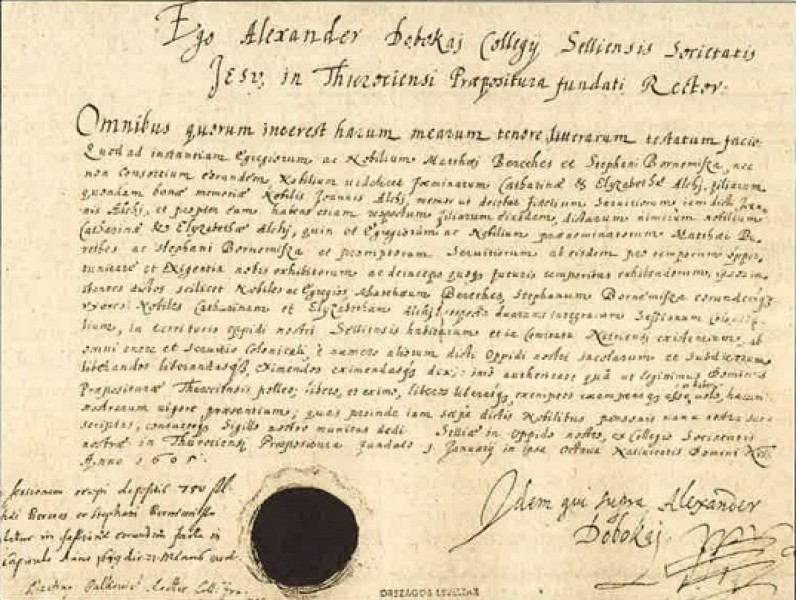 Ego Alexander Dobokaj Collegij Selliensis Societatis
Jesu, in Thurociensi Præpositura fundati Rector.
Omnibus quorum interest harum mearum tenore litterarum testatum facio:
Quod ad instantiam Egregiorum ac Nobilium Matthæi Bereches et Stephani Bornemisza, nec
non Consortium eorundem, Nobilium videlicet Fœminarum Catharinæ & Elyzabethæ Alchj, filiarum
quondam bonæ memoriæ Nobilis Joannis Alchj, fidelium Servitiorum iam dicti Joan-
nis Alchj, et propter eum habens etiam respectum filiarum eiusdem, dictarum nimirum nobilium
Catharinæ & Elyzabethæ Alchj, quin et Egregiorum ac Nobilium prænominatorum Matthæi Be-
reches ac Stephani Bornemisza et promptorum Servitiorum ab eisdem pro temporum oppor-
tunitate et Exigentia nobis exhibitorum ac deinceps quoque futuris temporibus exhibendorum,
scilicet Nobiles ac Egregios Matthæum Bereches, Stephanum Bornemisza eorundemque
uxores Nobiles Catharinam et Elyzabetham Alchj, respectu duarum integrarum Sessionum Coloni-
lium, in territorio oppidi nostri Selliensis habitarum et in Comitatu Nitriensi existentium, ab
omni onere et servitio Colonicali, è numero aliorum dicti Oppidi nostri incolarum et Subditorum
liberandos liberandasque, eximendos eximendasque duxi: imò authoritate quâ ut legitimus Dominus
Præposituræ Thurociensis polleo, libero, et eximo, liberos liberasque, exemptos exemptasque esse, volo, harum
nostrarum vigore præsentium; quas perinde iam sæpè dictis Nobilibus personis manu nostra sub-
scriptas, consuetoque Sigillo nostro munitas dedi. Selliæ in Oppido nostro, ex Collegio Societatis
nostræ in Thurociensi Præpositura fundato 1 Januarij in ipsa Octava Nativitatis Domini
Anno 1605.
Idem qui supra, Alexander
Dobokaj
depositis 750 fl.
Bereces et Stephani Bornemisza
in sessione eorundem facta in
Capitulo Anno 1649 die 21 Martij
Rector Collegij
ORSZÁGOS LEVÉLTÁR